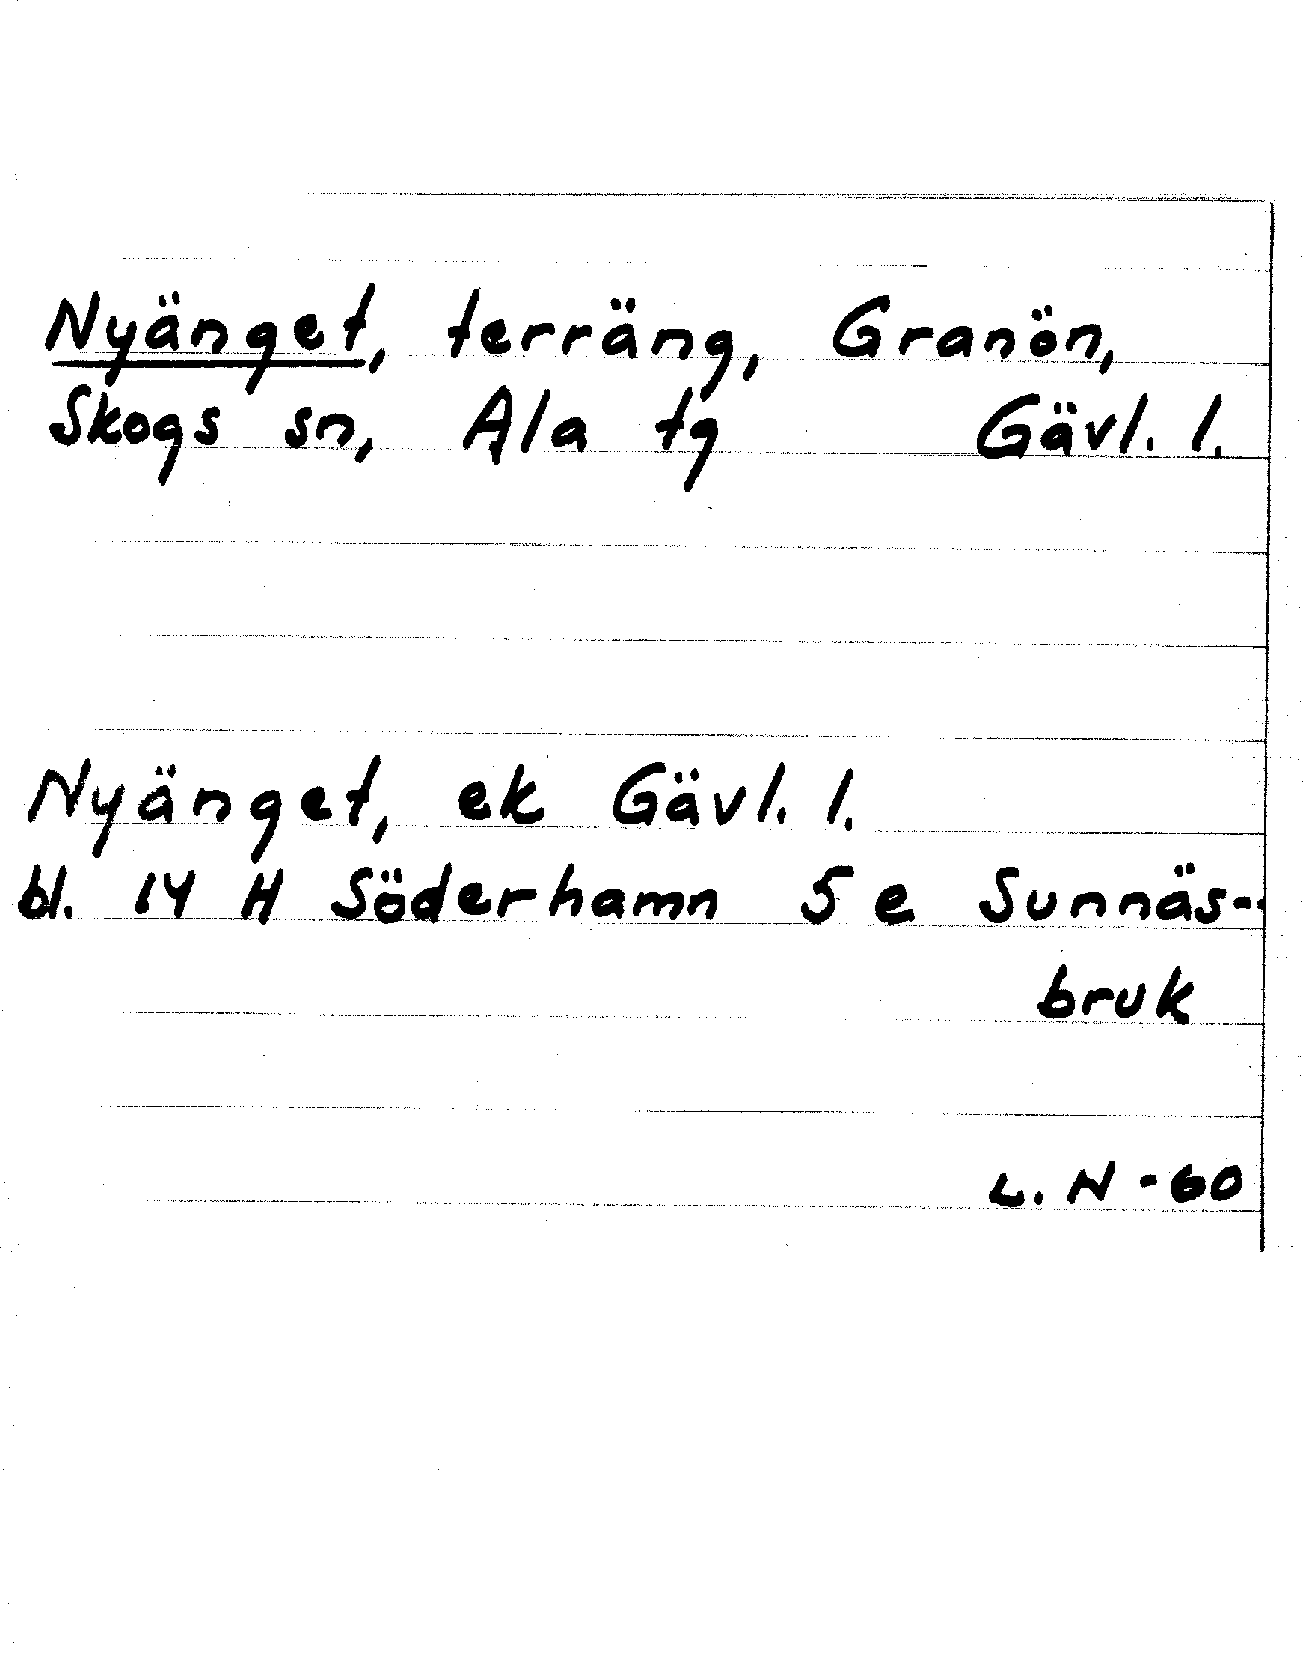 Nyänget, terräng, Granön,
Skogs sn, Ala tg Gävl. l.
Nyänget, ek Gävl. l.
bl. 14 H Söderhamn 5 e Sunnäs-
bruk
L. N - 60